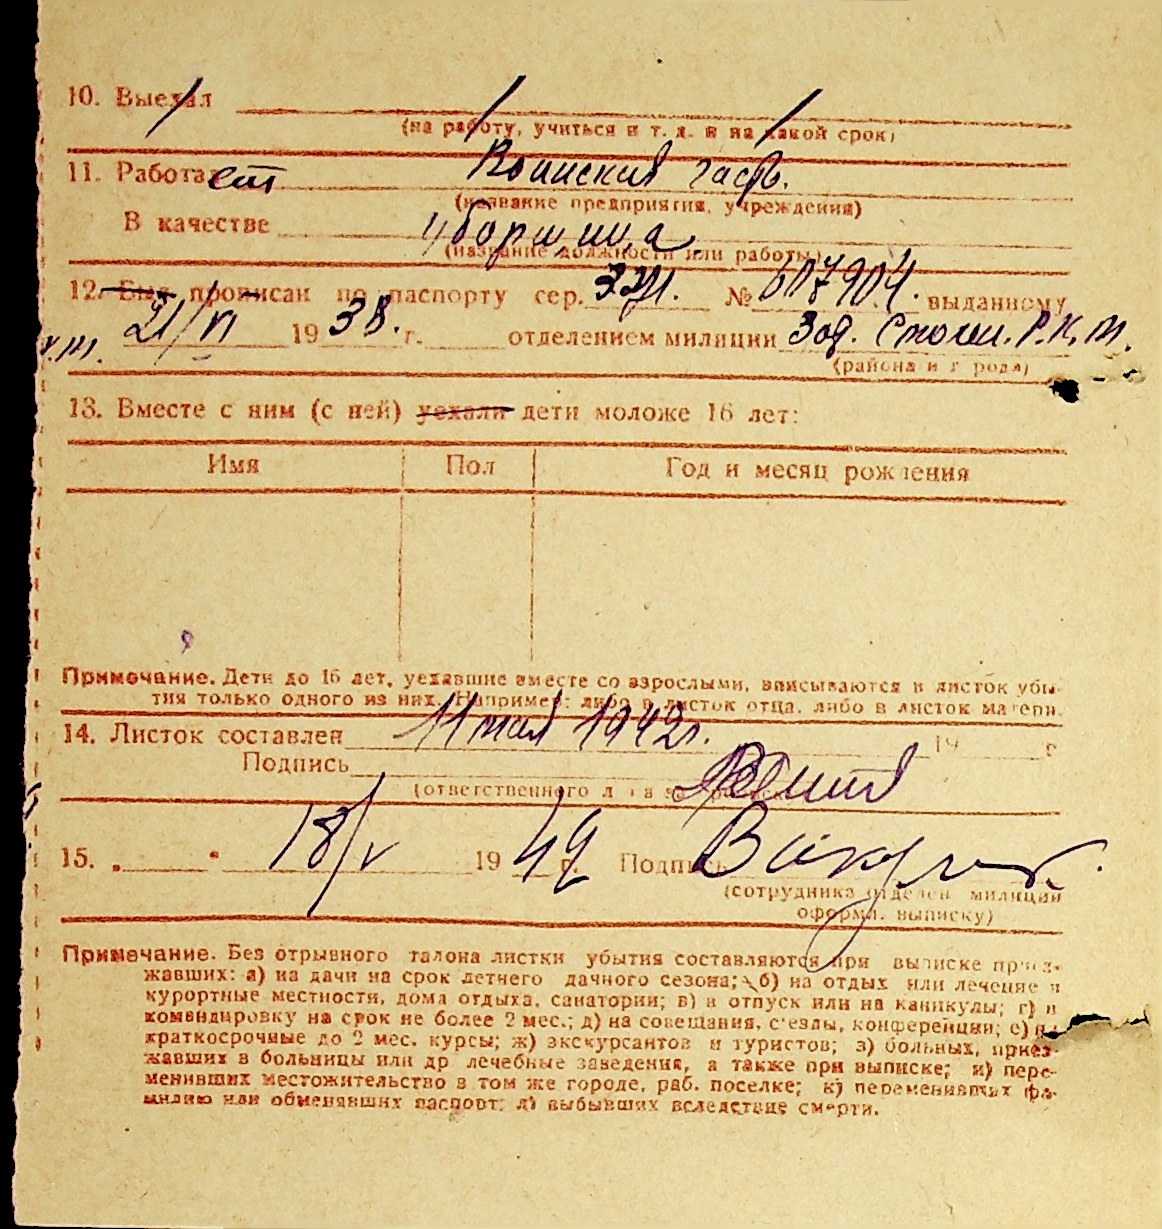 10. Выехал
(на работу, учиться и т. д. и на какой срок)
11. Работает Воинская часть.
(название предприятия, учреждения)
В качестве уборщица
(название должности или работы)
12. Был прописан по паспорту сер. № 607904. выданному
21/VI 1938. г. отделением милиции Р.К.М.
(района и города)
13. Вместе с ним (с ней) уехали дети моложе 16 лет:
Имя Пол Год и месяц рождения
Примечание. Дети до 16 лет, уехавшие вместе со взрослыми, вписываются в листок убы-
тия только одного из них. Например: либо в листок отца, либо в листок матери.
14. Листок составлен 11 мая 1942 г. 19 г
Подпись
(ответственного
15. „ “ 18/V 1942 г. Подпись
(сотрудника отделен милиции
оформл. выписку)
Примечание. Без отрывного талона листки убытия составляются при выписке приез-
жавших: а) на дачи на срок летнего дачного сезона; б) на отдых или лечение в
курортные местности, дома отдыха, санатории; в) в отпуск или на каникулы; г) в
командировку на срок не более 2 мес.; д) на совещания, с'езды, конференции; е) на
краткосрочные до 2 мес. курсы; ж) экскурсантов и туристов; з) больных, приез-
жавших в больницы или др лечебные заведения, а также при выписке; и) пере-
менивших местожительство в том же городе, раб. поселке; к) переменивших фа-
милию или обменявших паспорт; л) выбывших вследствие смерти.